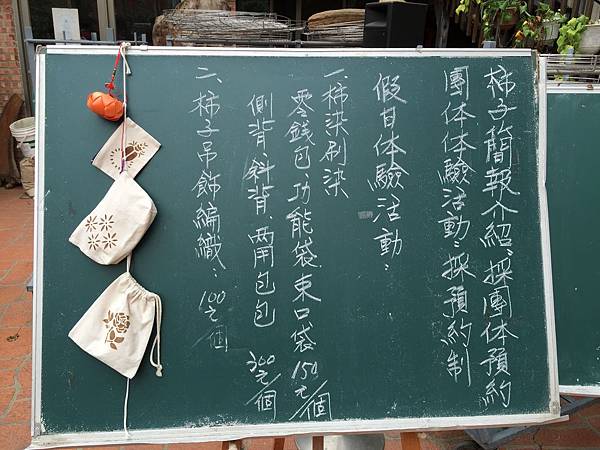 柿子簡報介紹：採團体預約
團体体驗活動：採預約制
假日体驗活動：
一、柿染刷染
零錢包、功能袋、束口袋150元/個
側背、斜背、兩用包包 300元/個
二、柿子吊飾編織：100元/個